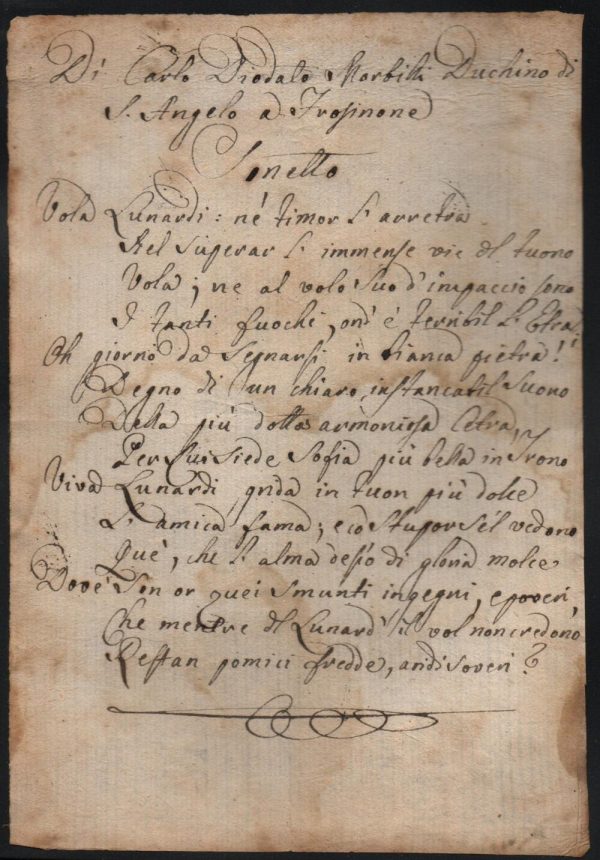 Di Carlo Diodato Morbilli Duchino di
S. Angelo a Frosinone
Sonetto
Vola Lunardi: né timor l'arretra
Nel superar l'immense vie del tuono
Vola; ne al volo suo d'impaccio sono
I tanti fuochi, ond'è terribil l'Etra.
Oh giorno da segnarsi in bianca pietra!
Degno di un chiaro, instancabil suono
Della più dotta armoniosa Cetra,
Per cui siede Sofia più bella in Trono
Viva Lunardi, grida in tuon più dolce
L'amica fama; e có stupor s'él vedono
Què, che l'alma desìo di gloria molce
Dove son or quei smunti ingegni, e poveri,
Che mentre di Lunard' il vol non credono
Restan pomici fredde, andi soveri?